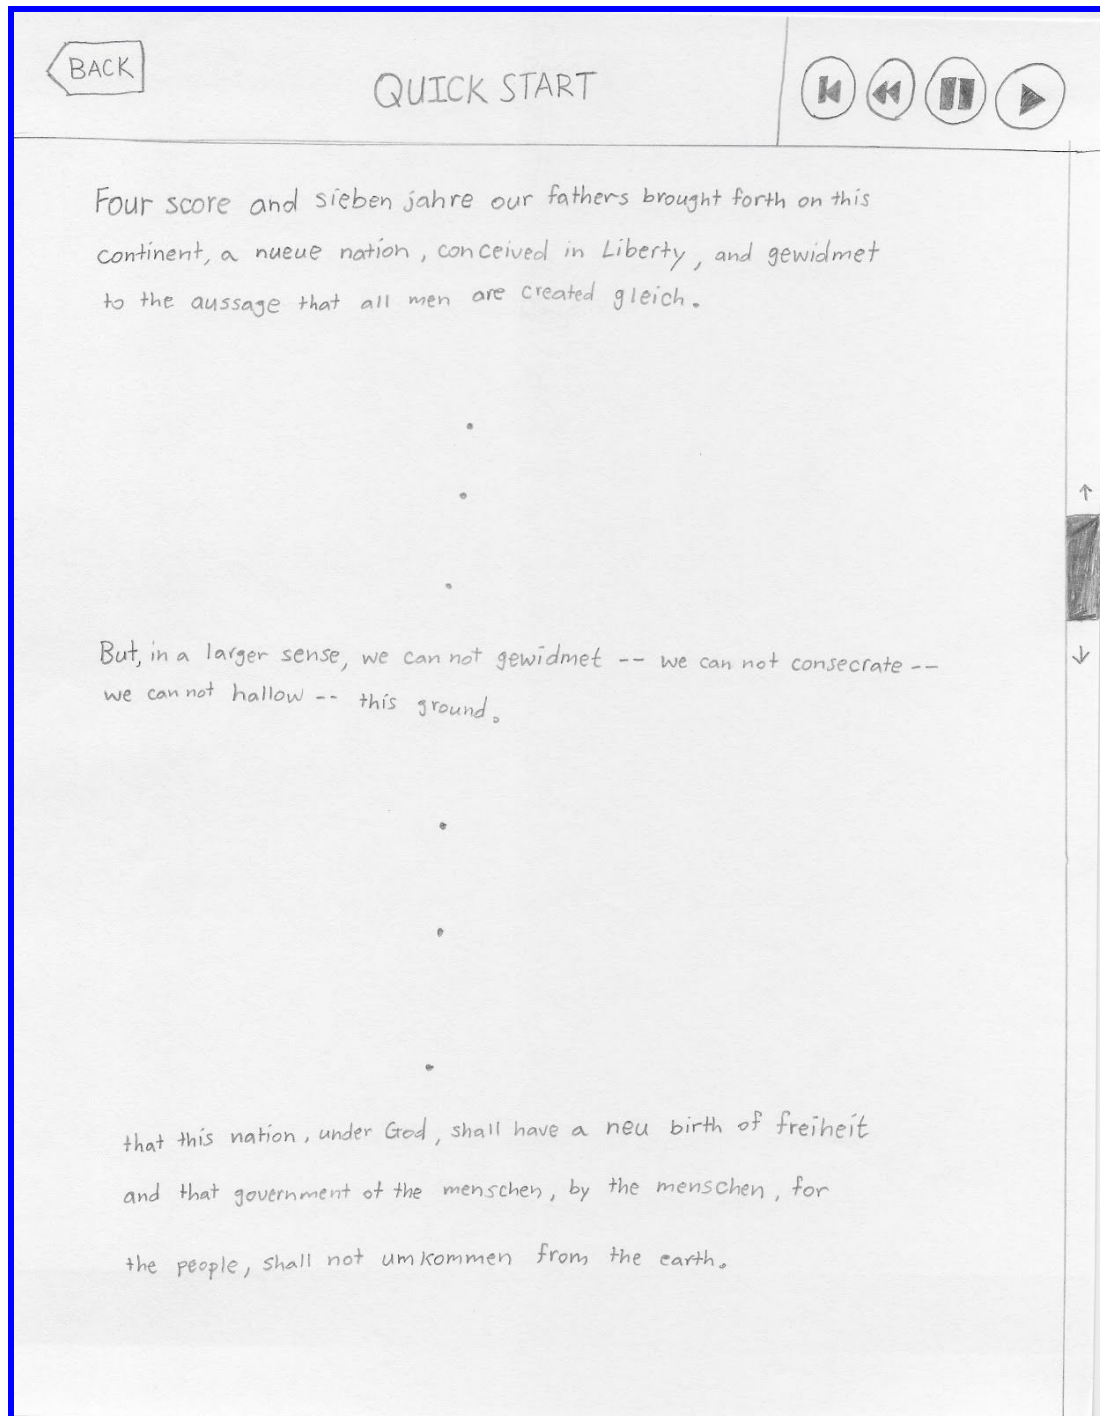 BACK
QUICK START
Four score and sieben jahre our fathers brought forth on this
continent, a nueue nation, conceived in Liberty, and gewidmet
to the aussage that all men are created gleich.
But, in a larger sense, we can not gewidmet -- we can not consecrate --
we can not hallow -- this ground.
that this nation, under God, shall have a neu birth of freiheit
and that government of the menschen, by the menschen, for
the people, shall not umkommen from the earth.